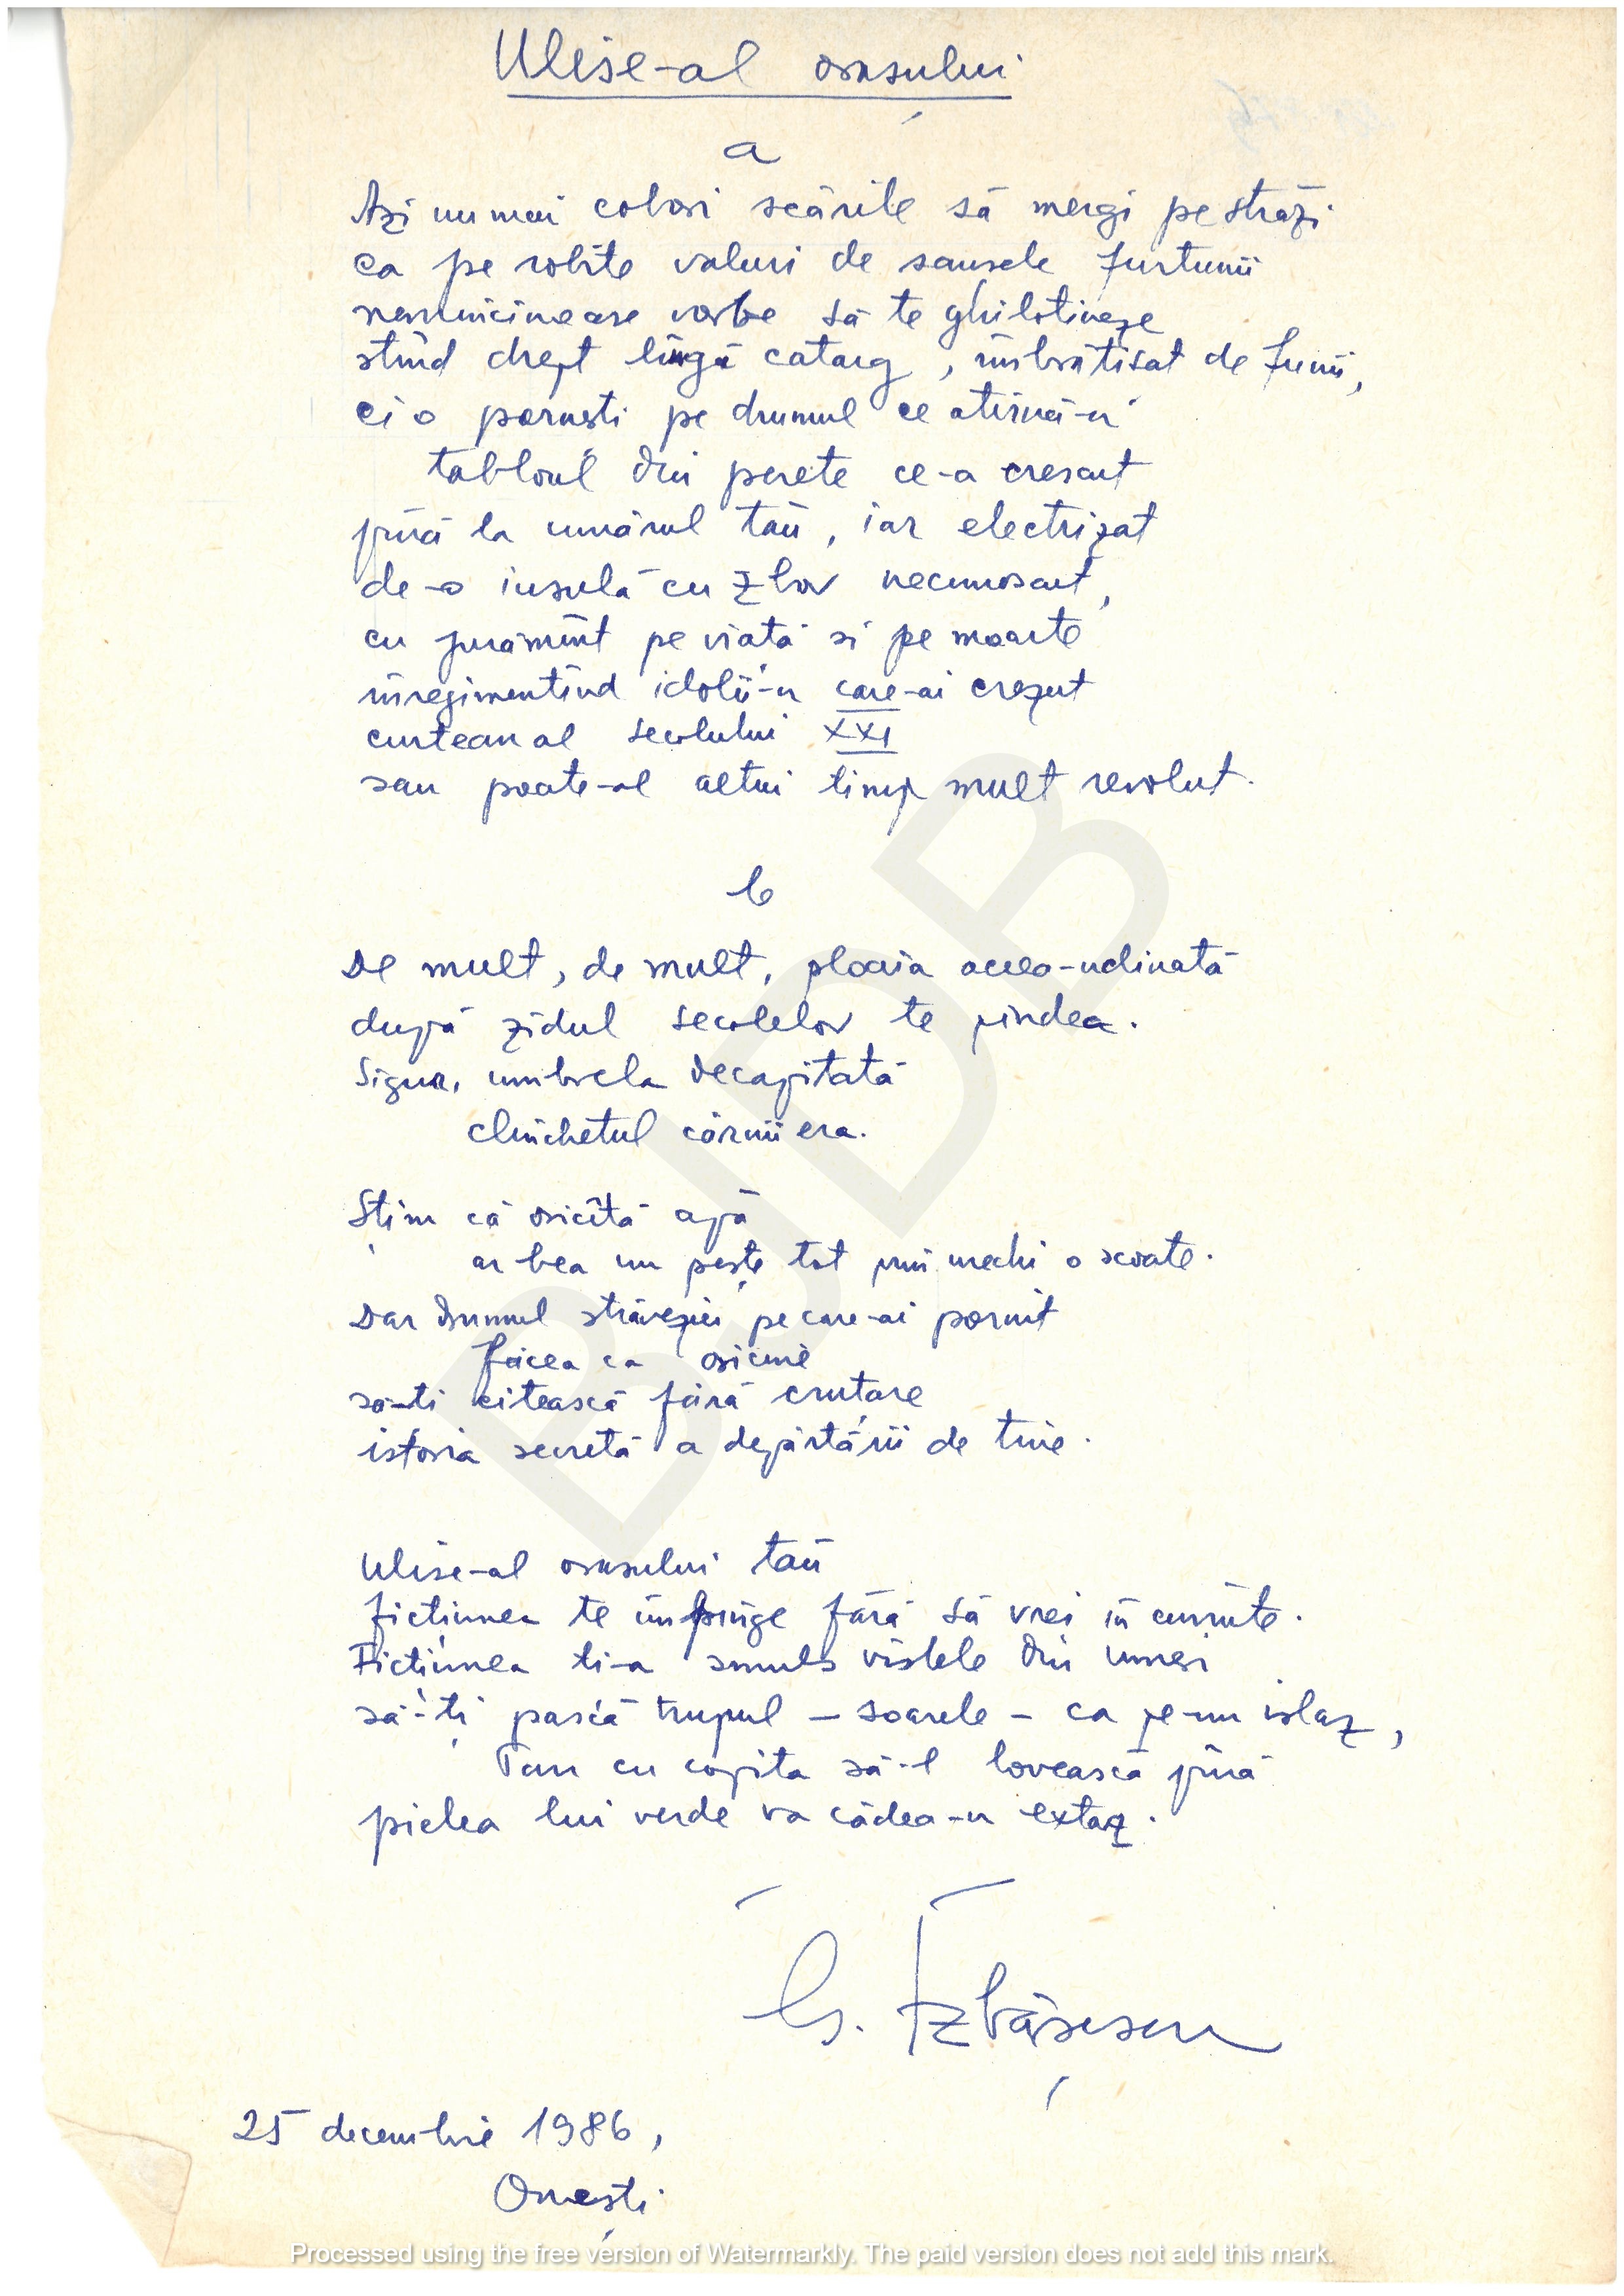 Ulise-al orașului
a
Azi nu mai cobori scările să mergi pe străzi
ca pe robite valuri de sansele furtunii
vorbe să te ghilotineze
stînd drept lîngă catarg, îmbrățișat de funii,
ci o pornești pe drumul ce atîrnă-n
tabloul din perete ce-a crescut
pînă la umărul tău, iar electrizat
de-o insulă cu zbor necunoscut,
cu jurămînt pe viață si pe moarte
înregimentînd idolii-n care-ai crezut
curtean al secolului XXI
sau poate-al altui timp mult revolut.
b
De mult, de mult, ploaia aceea-nclinată
după zidul secolelor te pîndea.
Sigur, umbrela decapitată
clinchetul cârmii era.
Știm că oricîtă apă
ar bea un pește tot prin urechi o scoate.
Dar drumul străveziu pe care-ai pornit
făcea ca oricine
să-ți citească fără cruțare
istoria secretă a depărtării de tine.
Ulise-al orasului tău
ficțiunea te împinge fără să vrei în cuvinte.
Ficțiunea ți-a smuls vîslele din umeri
să-ți pască trupul – soarele – ca pe-un islaz,
Pan cu copita să-l lovească pînă
pielea lui verde va cădea-n extaz.
G. Izbășescu
25 decembrie 1986,
Onești
BJDB
Processed using the free version of Watermarkly. The paid version does not add this mark.